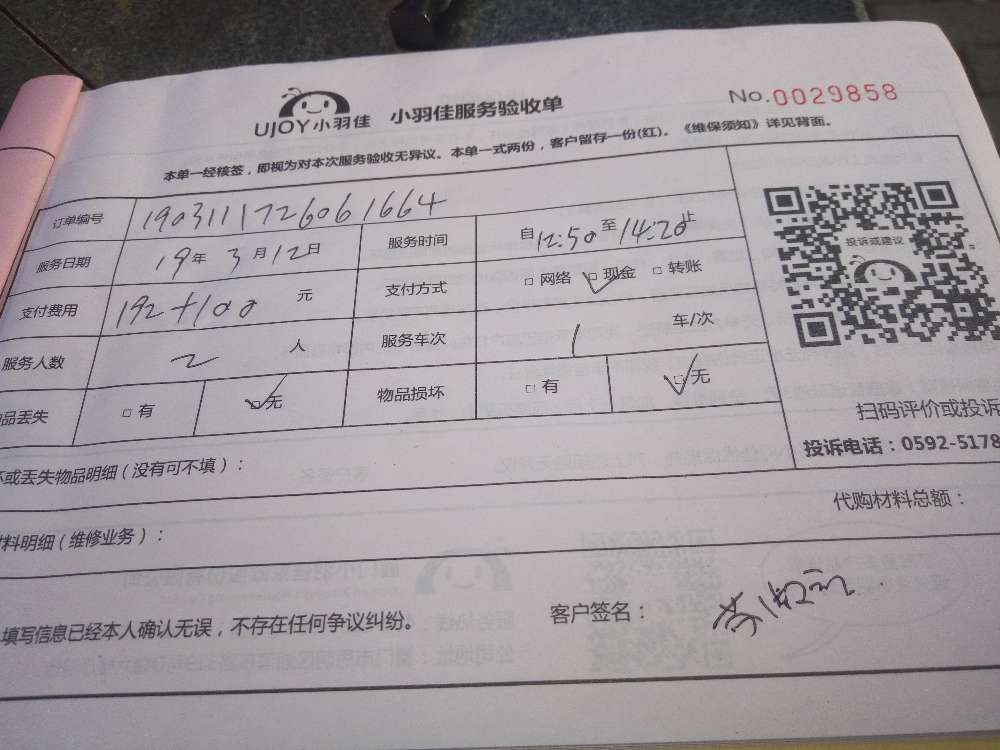 UJOY小羽佳 小羽佳服务验收单 No.0029858
本单一经核签，即视为对本次服务验收无异议。本单一式两份，客户留存一份(红)。《维保须知》详见背面。
订单编号 1903111726061664
服务日期 19年3月12日 服务时间 自12:50至14:20止
支付费用 192+100 元 支付方式 □网络 ☑现金 □转账
服务人数 2 人 服务车次 1 车/次
品丢失 □有 ☑无 物品损坏 □有 ☑无
投诉或建议
扫码评价或投诉
投诉电话：0592-5178
坏或丢失物品明细（没有可不填）：
代购材料总额：
材料明细（维修业务）：
填写信息已经本人确认无误，不存在任何争议纠纷。 客户签名：